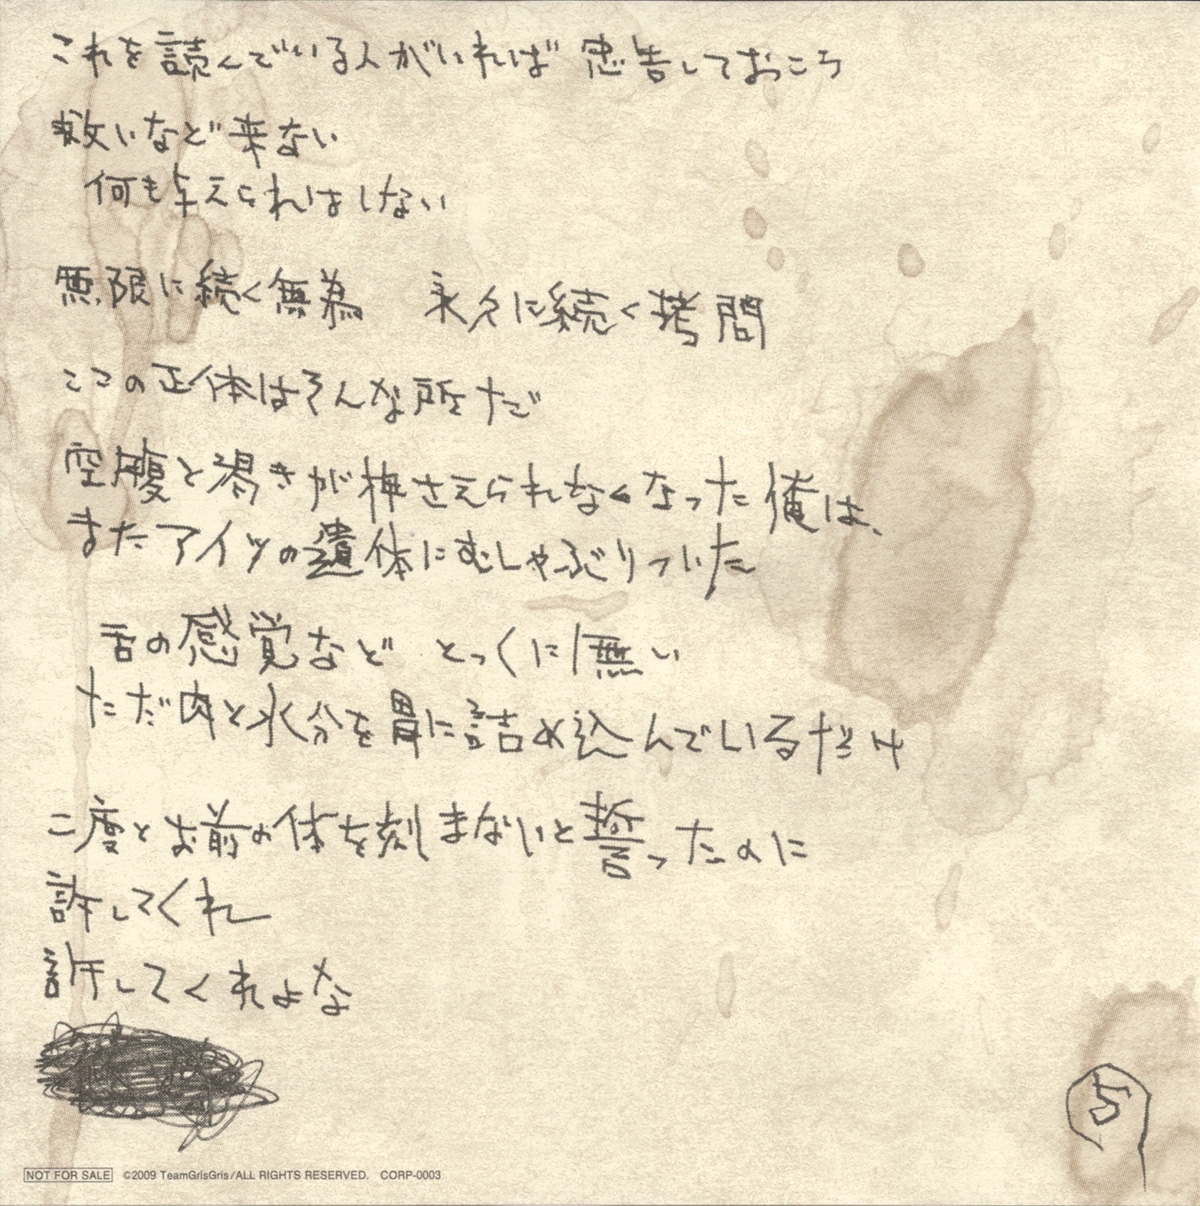 これを読んでいる人がいれば 忠告しておこう
救いなど来ない
何も与えられはしない
無限に続く無為 永久に続く拷問
ここの正体はそんな所だ
空腹と渇きが押さえられなくなった俺は、
またアイツの遺体にむしゃぶりついた
舌の感覚など とっくに無い
ただ肉と水分を胃に詰め込んでいるだけ
二度とお前の体を刻まないと誓ったのに
許してくれ
許してくれよな
5
NOT FOR SALE ©2009 TeamGrisGris/ALL RIGHTS RESERVED. CORP-0003